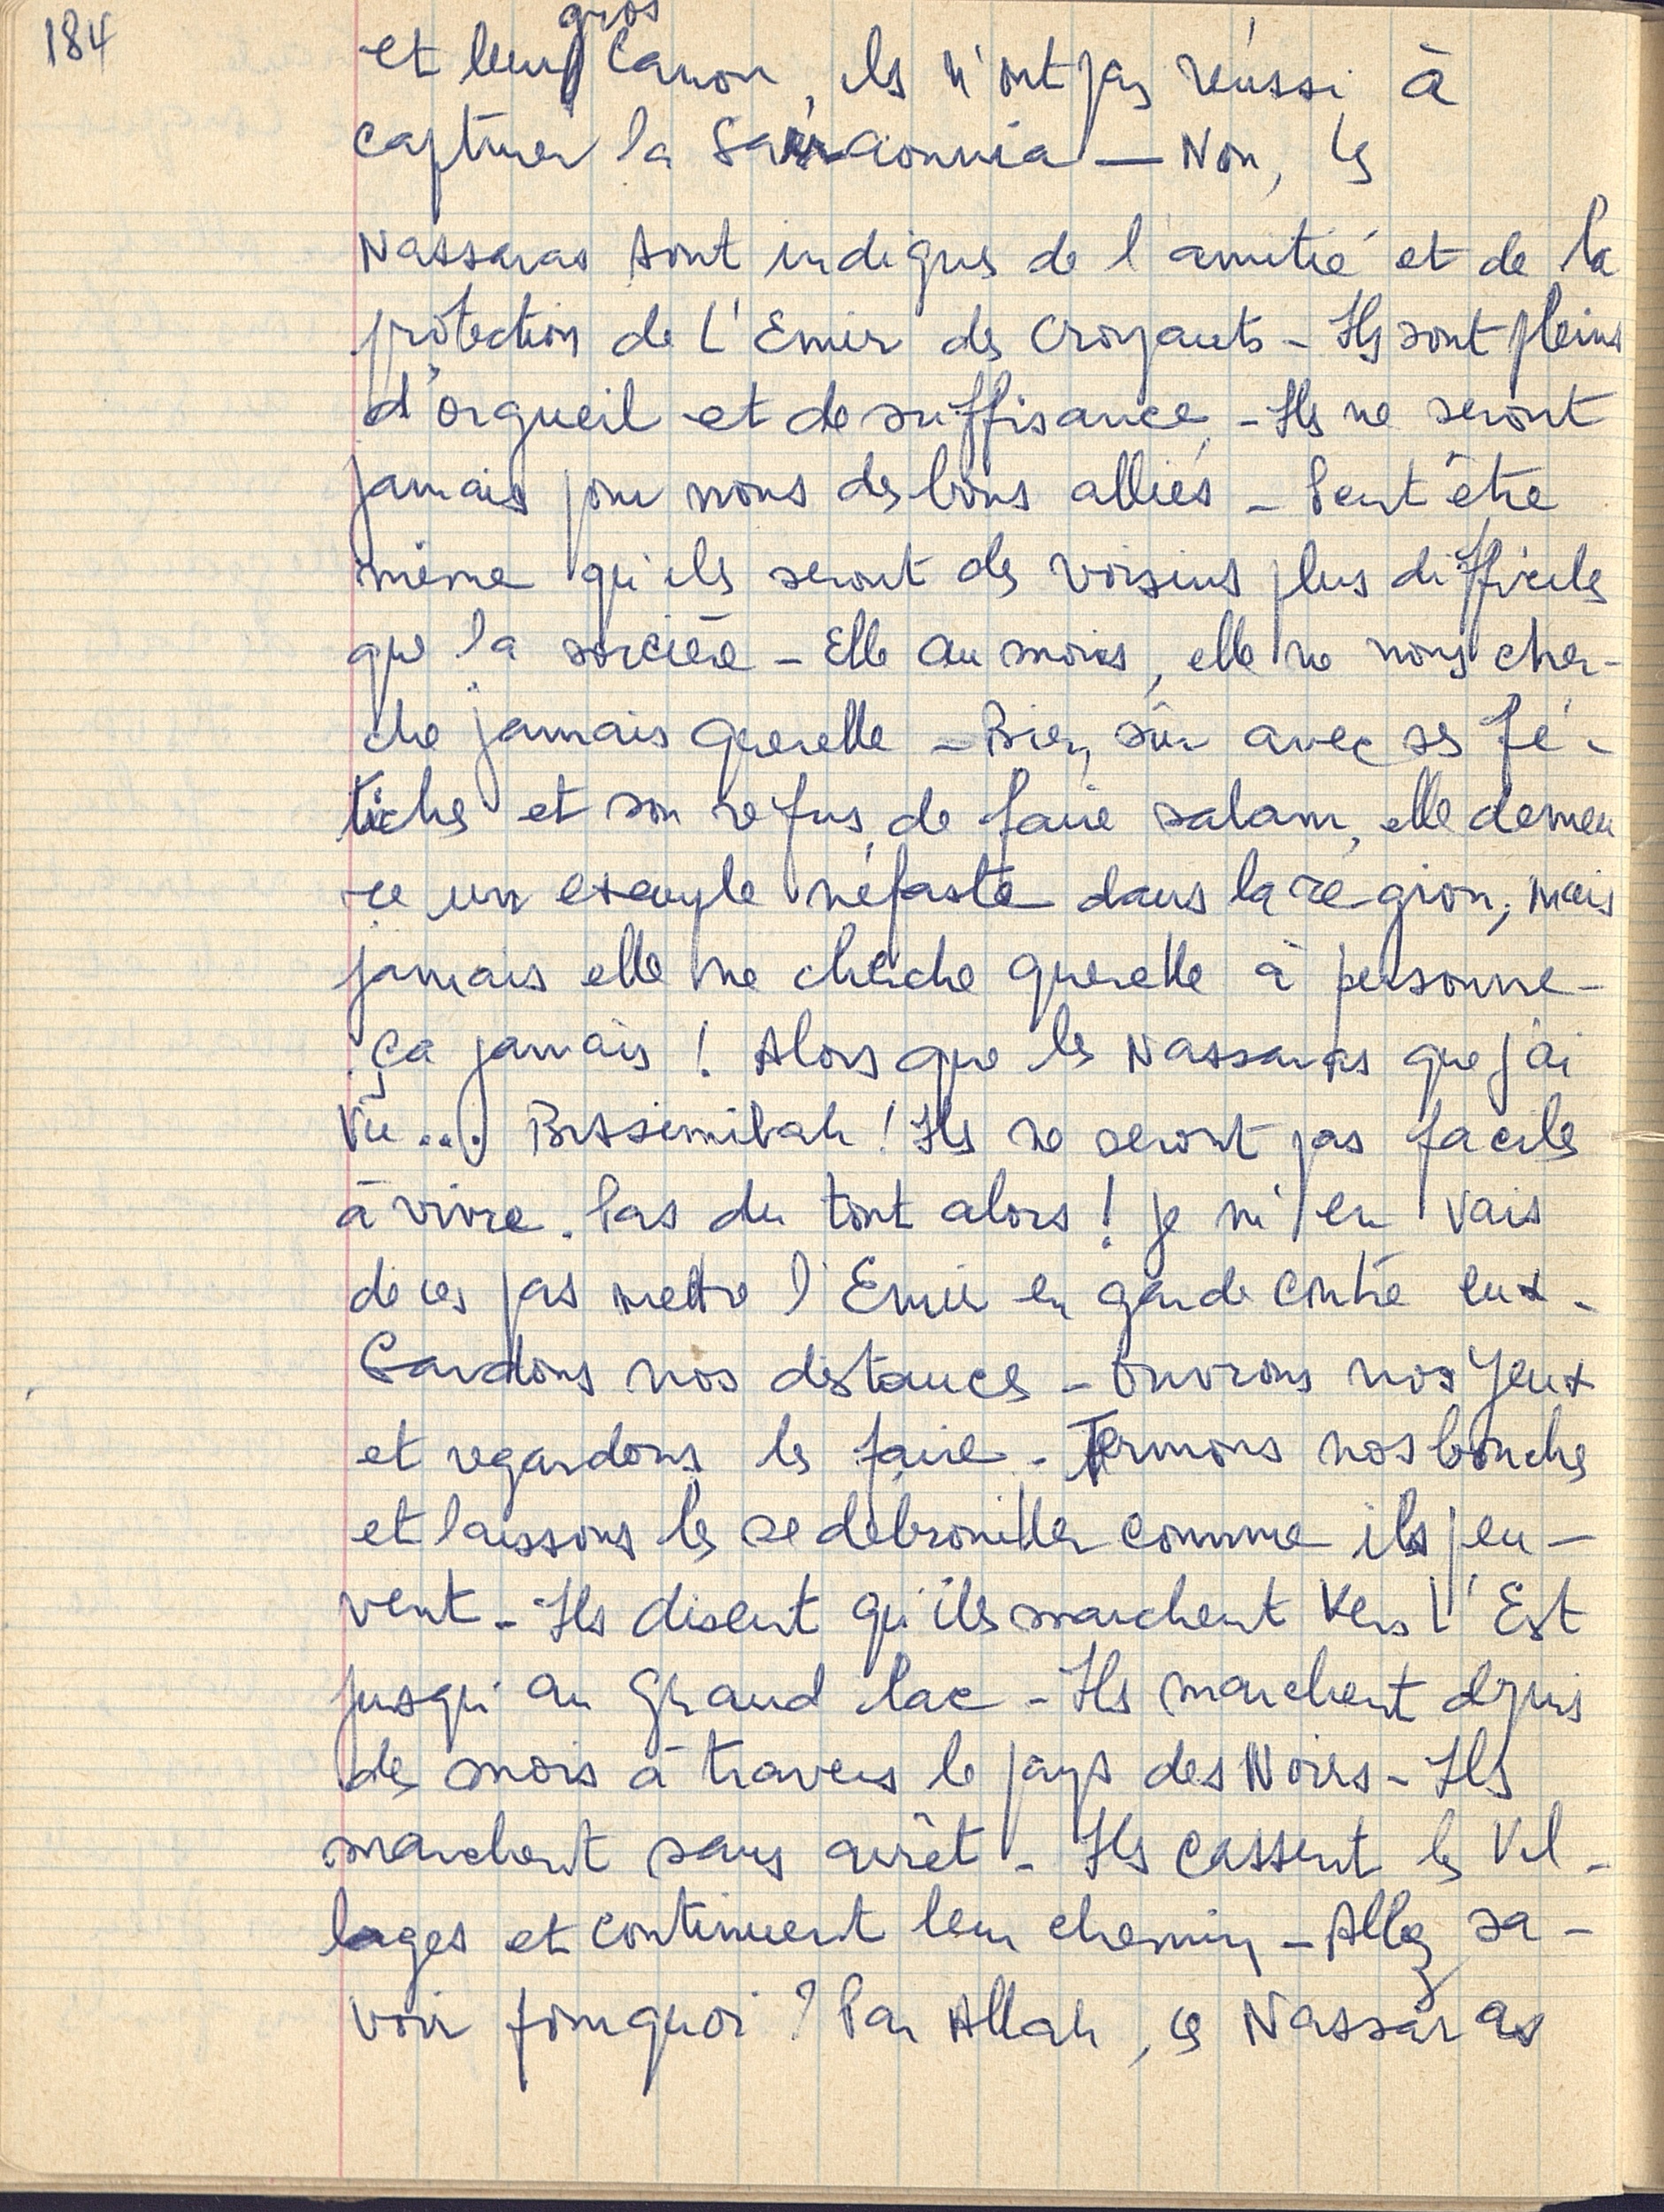 184
gros
et leur canon, ils n'ont pas réussi à
capturer la Sarraounia — Non, les
Nassaras sont indignes de l'amitié et de la
protection de L'Emir des Croyants - Ils sont pleins
d'orgueil et de suffisance - Ils ne seront
jamais pour nous des bons alliés - Peut être
même qu'ils seront des voisins plus difficiles
que la sorcière - Elle au moins, elle ne nous cher-
che jamais querelle - Bien sûr avec ses fé-
tiches et son refus de faire salam, elle demeu
re un exemple néfaste dans la région, mais
jamais elle ne cherche querelle à personne -
Ça jamais ! Alors que les Nassaras que j'ai
vu .... Bissimilah ! Ils ne seront pas faciles
à vivre. Pas du tout alors ! je m'en vais
de ces pas mettre l'Emir en garde contre eux -
Gardons nos distances - Ouvrons nos yeux
et regardons les faire - Fermons nos bouches
et laissons les se débrouiller comme ils peu-
vent - Ils disent qu'ils marchent vers l'Est
jusqu'au grand lac - Ils marchent depuis
des mois à travers le pays des Noirs - Ils
marchent sans arrêt - Ils cassent les vil-
lages et continuent leur chemin - Allez sa-
voir pourquoi ? Par Allah, ces Nassaras